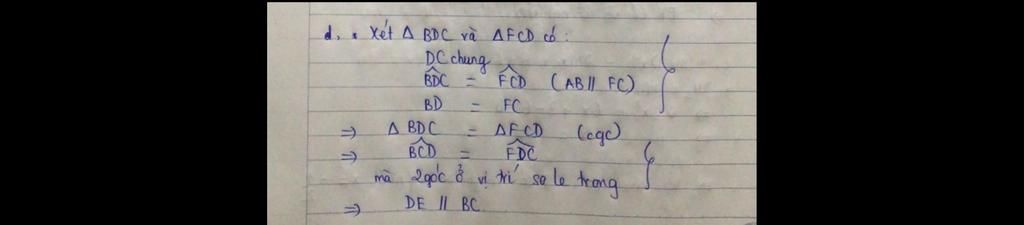 d, * Xét Δ BDC và ΔFCD có:
DC chung
BDC = FCD (AB // FC)
BD = FC
=> Δ BDC = ΔFCD (cgc)
=> BCD = FDC
mà 2 góc ở vị trí so le trong
=> DE // BC